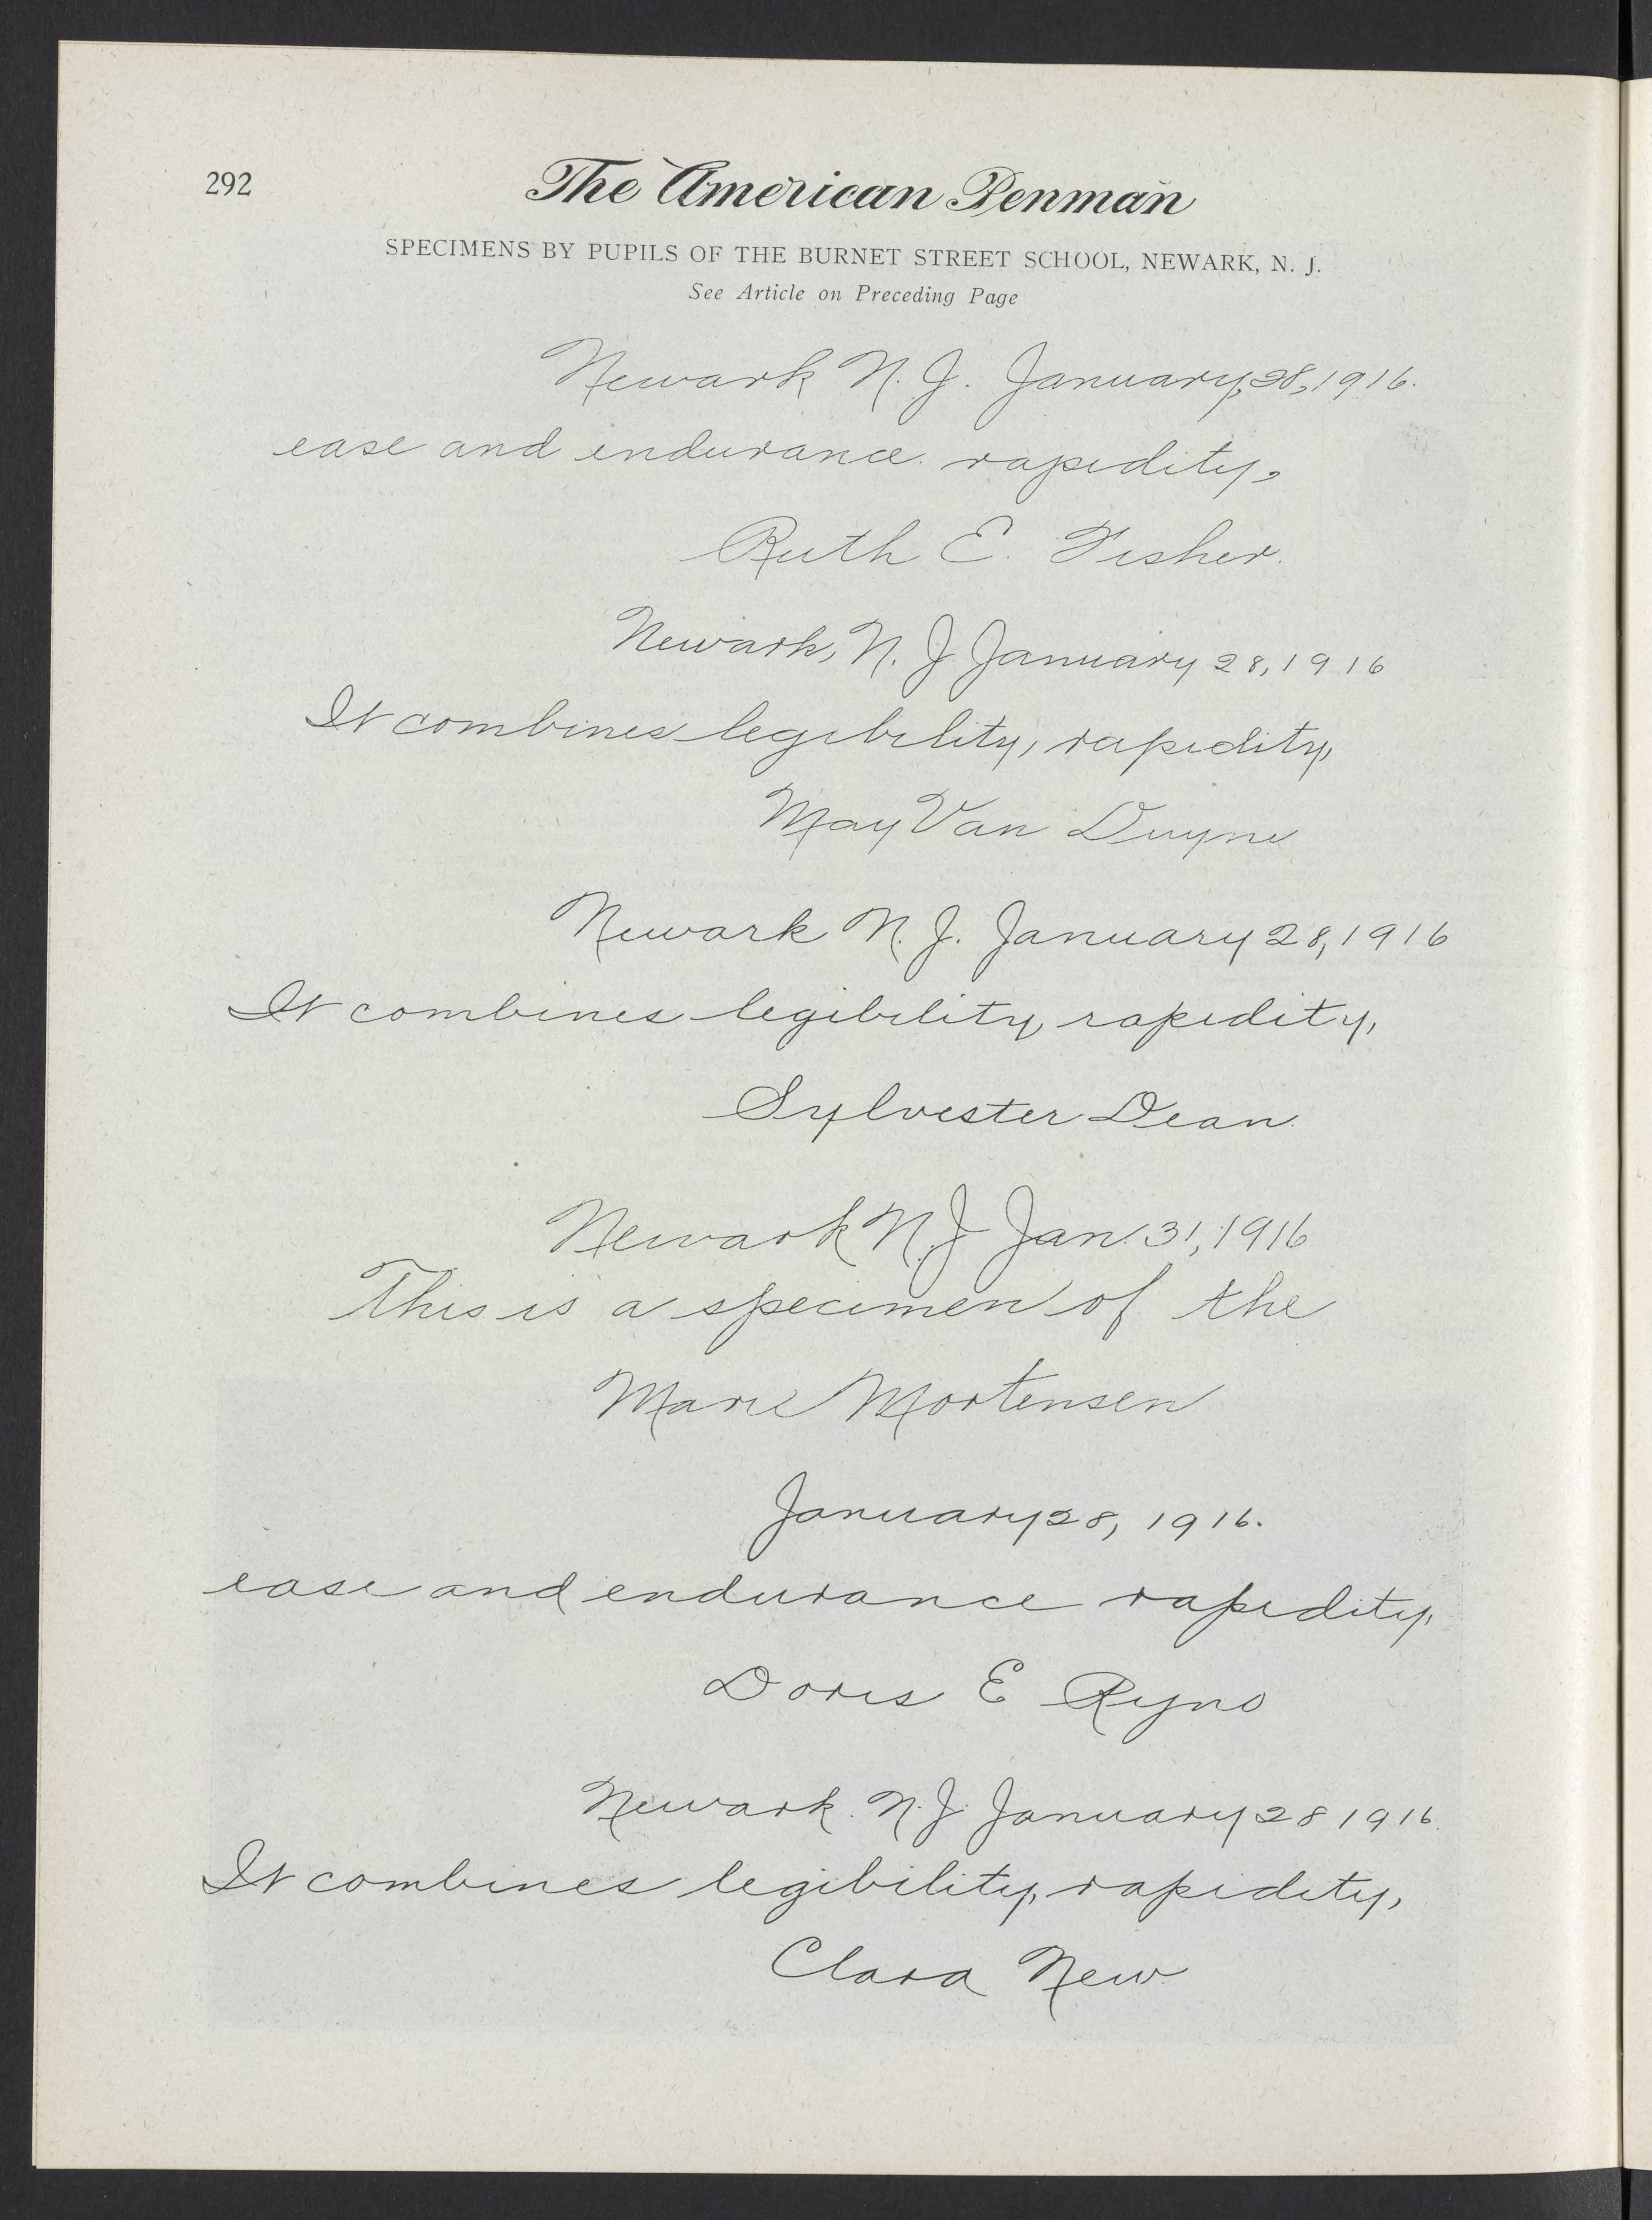 292
The American Penman
SPECIMENS BY PUPILS OF THE BURNET STREET SCHOOL, NEWARK, N. J.
See Article on Preceding Page
Newark N. J. January, 28, 1916.
ease and endurance. rapidity,
Ruth E. Fisher.
Newark, N. J. January 28, 1916
It combines legibility, rapidity,
May Van Duyne
Newark N. J. January 28, 1916
It combines legibility, rapidity,
Sylvester Dean.
Newark N. J Jan. 31, 1916
This is a specimen of the
Marie Mortensen
January 28, 1916.
ease and endurance rapidity,
Doris E Ryno
Newark. N. J. January 28 1916.
It combines legibility, rapidity,
Clara New.